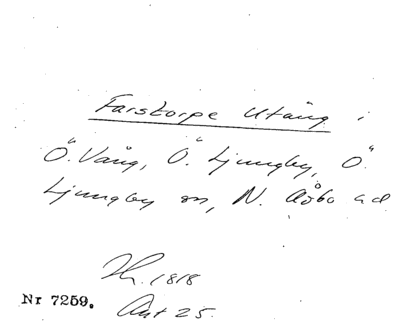 Farstorpe Utäng i
Ö. Vång, Ö. Ljungby, Ö.
Ljungby sn, N. Åsbo hd
Lr. 1818
Nr 7259.
Akt 25.